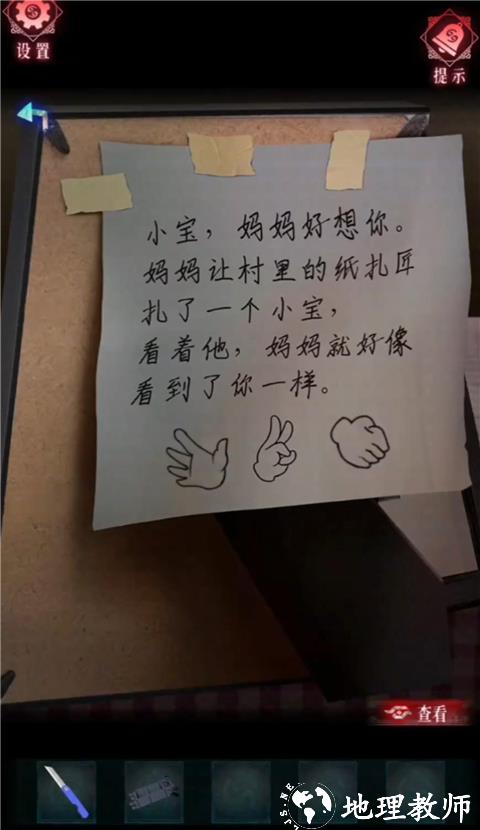 设置
提示
小宝，妈妈好想你。
妈妈让村里的纸扎匠
扎了一个小宝，
看着他，妈妈就好像
看到了你一样。
查看
JS.NE
地理教师